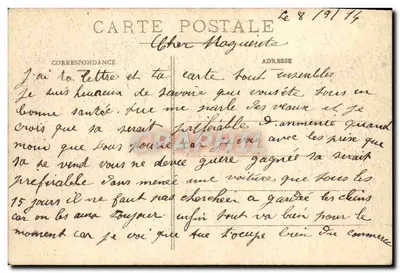 Le 8/9/14
CARTE POSTALE
Cher Maguerite
CORRESPONDANCE
ADRESSE
J'ai ta lettre et ta carte tout ensembles
je suis heureux de savoire que vous ete tous en
bonne santée. tue me parle des veaux et je
crois que sa serait préférable d'ammener quand
moin que vous pourrez car je voi avec les prise que
sa se vend vous ne devez guère gagnés sa serait
preferable d'ans mener une voiture que tous les
15 jours il ne faut pas cherchein a gardée les chiens
car on les aura toujour enfin tout va bien pour le
moment car je voi que tue t'ocupe bien du commerce